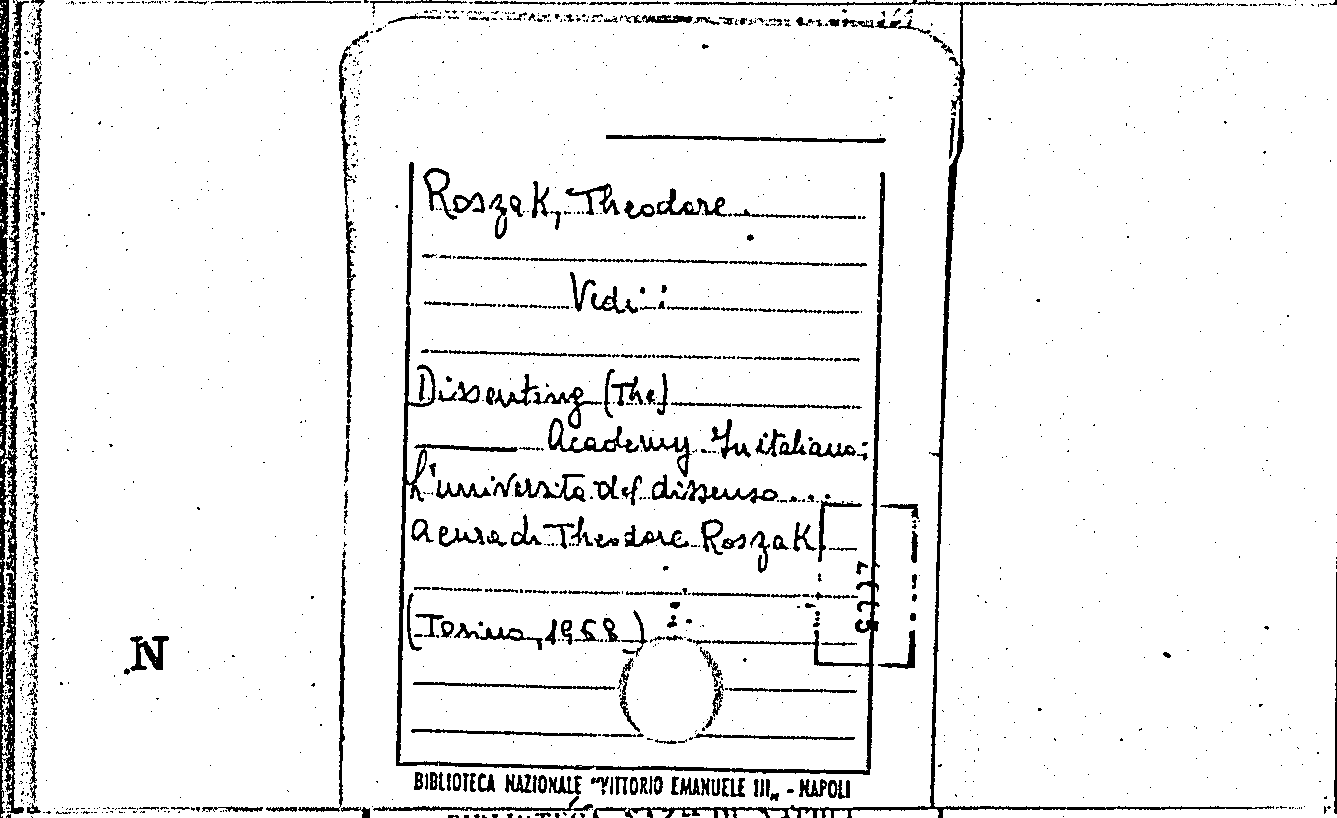 Roszak, Theodore.
Vedi:
Dissenting (The)
Academy. In italiano:
L'università del dissenso...
a cura di Theodore Roszak.
(Torino, 1968)
N
BIBLIOTECA NAZIONALE "VITTORIO EMANUELE III„ - NAPOLI